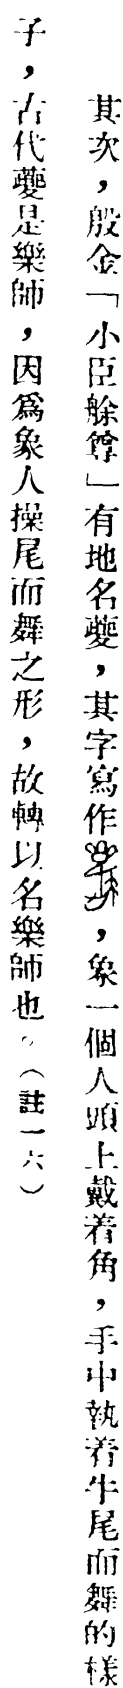 其次，殷金「小臣艅𢍜」有地名夔，其字寫作，象一個人頭上戴着角，手中執着牛尾而舞的樣
子，古代夔是樂師，因爲象人操尾而舞之形，故轉以名樂師也。（註一六）